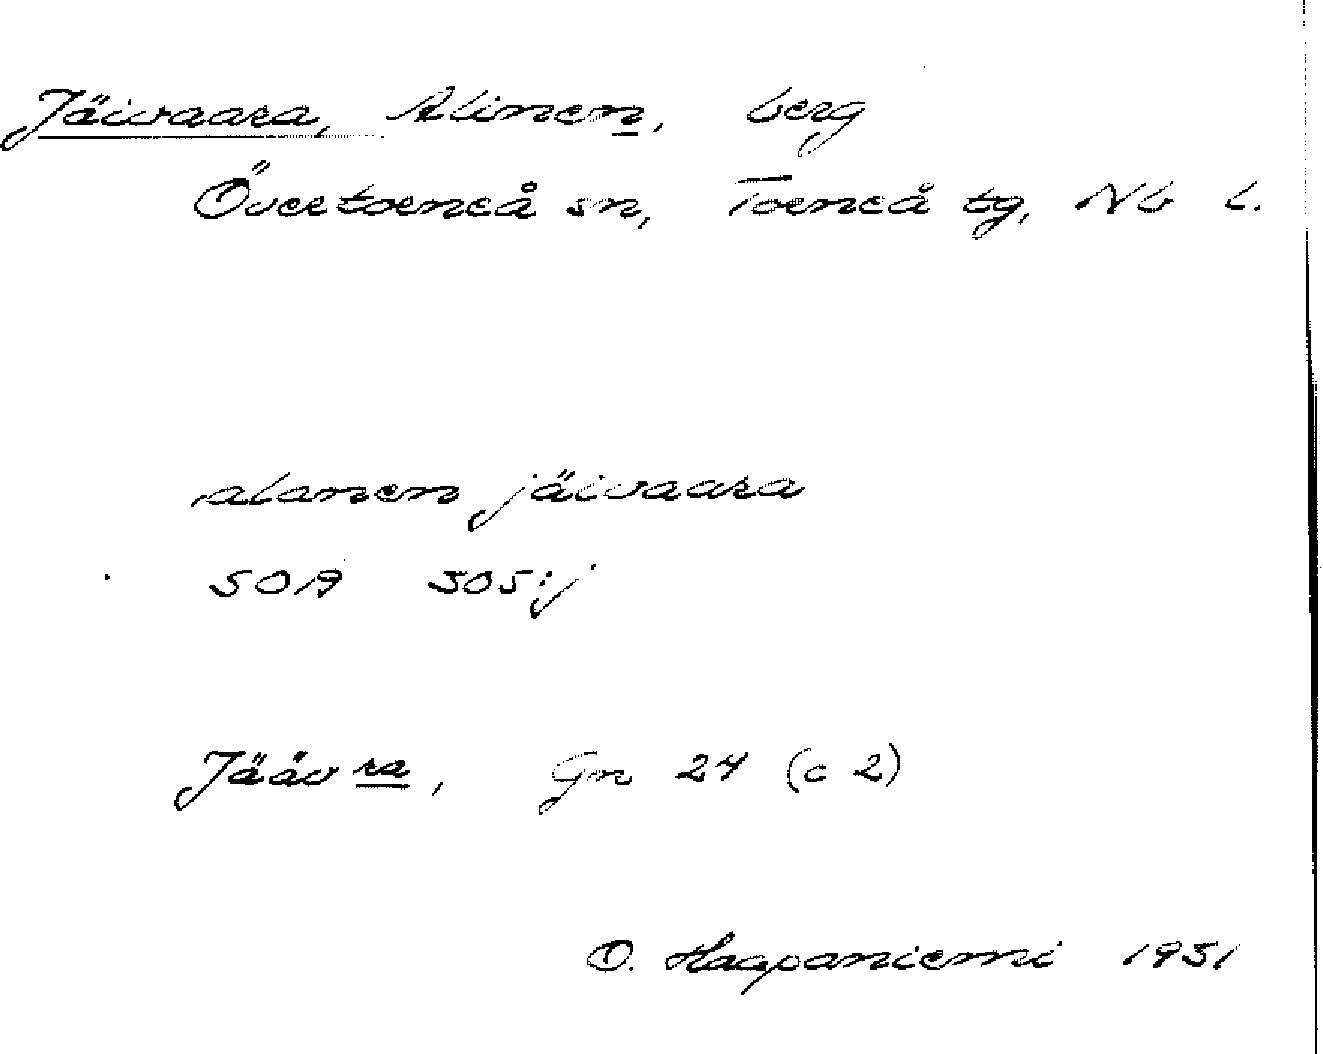 Jäivaara, Alinen, berg
Övertorneå sn, Torneå tg, Nb l.
alanen jäivaara
SOA 305:j
Jääv ra, Gn 24 (c 2)
O. Haapaniemi 1931